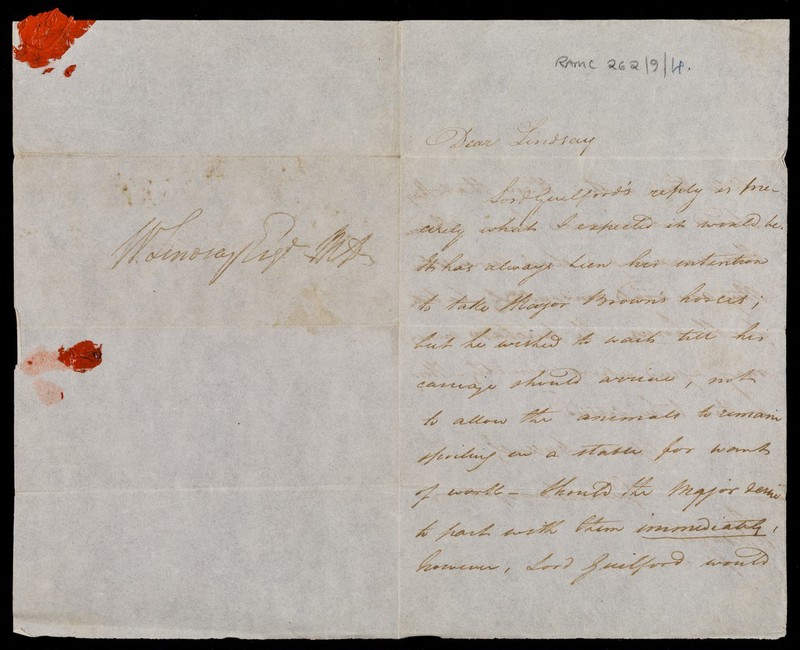 RAMC 262/9/4.
W. Lindsay Esqr MD
Dear Lindsay
Lord Guilford's reply is pre-
cisely what I expected it would be.
It has always been his intention
to take Major Brown's horses;
but he wished to wait till his
carriage should arrive, not
to allow the animals to remain
spoiling in a stable for want
of work - Should the Major desire
to part with them immediately,
however, Lord Guilford would